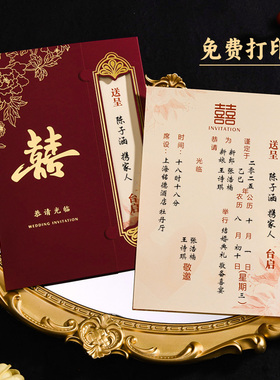 免费打印
送呈
陈子涵 携家人
台启
囍
恭请光临
WEDDING INVITATION
囍
INVITATION
送呈
陈子涵 携家人
台启
谨定于
公历
二零二五年
月
日
星期三
农历
乙巳年
八月
初十日
为
新郎 张浩楠
新娘 王诗琪
举行
结婚典礼 敬备喜宴
恭请
光临
时间：
十八时十八分
席设：
上海铭德酒店 牡丹厅
张浩楠
王诗琪
敬邀